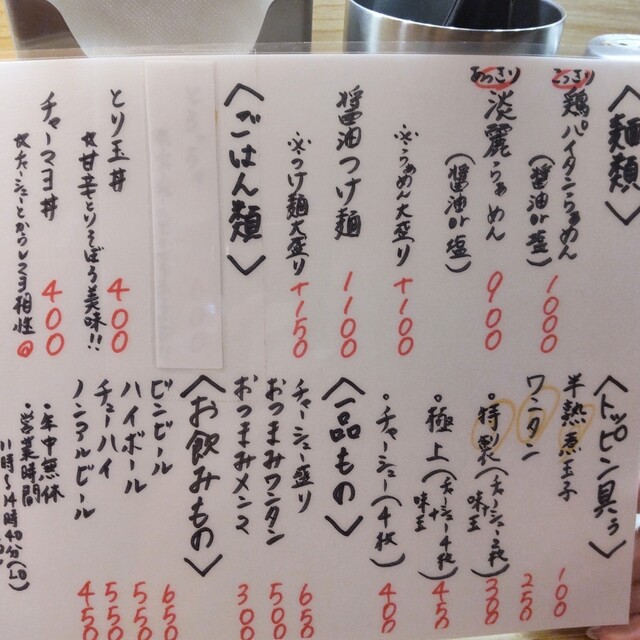 〈麺類〉
こってり
鶏パイタンらぁめん
(醤油or塩)
1000
あっさり
淡麗らぁめん
(醤油or塩)
900
※らぁめん大盛り
+100
醤油つけ麺
1100
※つけ麺大盛り
+150
〈ごはん類〉
とり玉丼
400
☆甘辛とりそぼろ美味!!
チャーマヨ丼
400
〈トッピング〉
半熟煮玉子
100
ワンタン
250
・特製(チャーシュー2枚+味玉)
・極上(チャーシュー4枚+味玉)
450
・チャーシュー(4枚)
400
〈一品もの〉
チャーシュー盛り
650
おつまみワンタン
500
おつまみメンマ
300
〈お飲みもの〉
ビンビール
650
ハイボール
550
チューハイ
550
ノンアルビール
450
・年中無休
営業時間